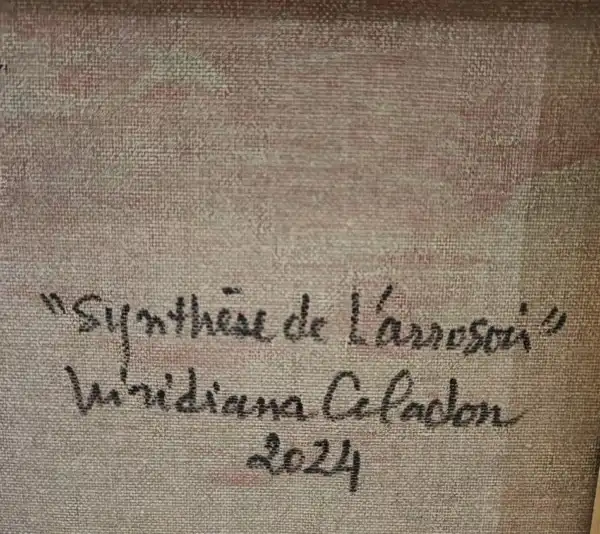 "Synthèse de L'arrosoir"
Viridiana Celadon
2024